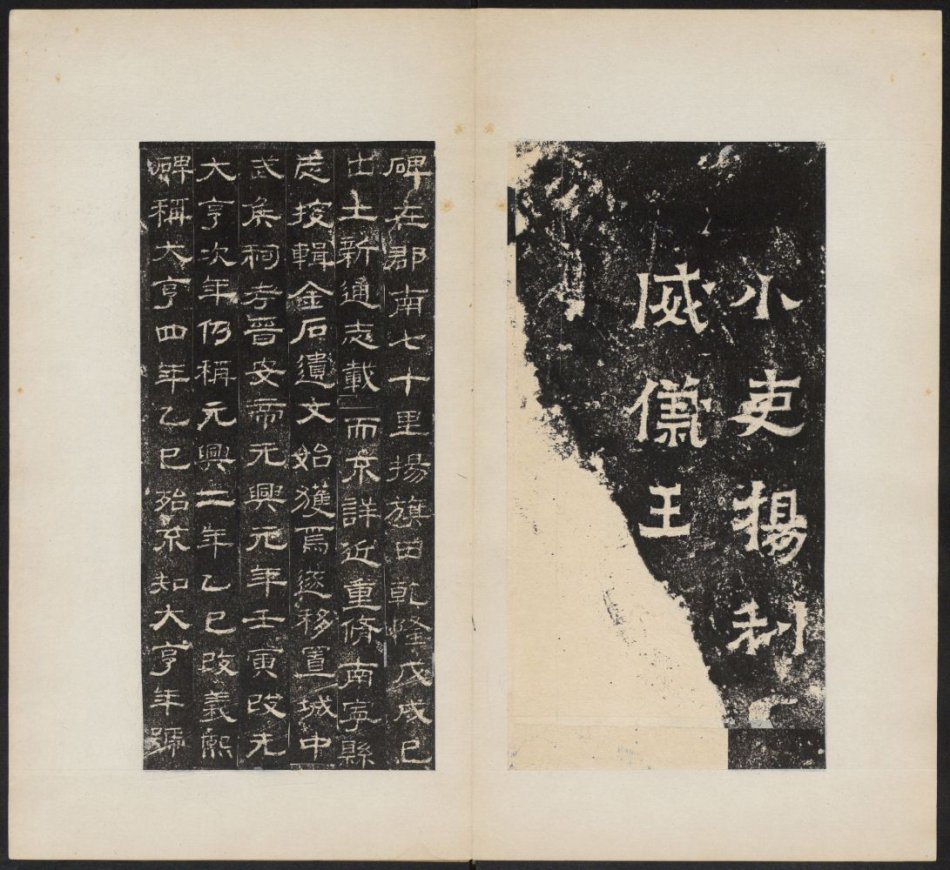 小吏揚利
威儀王
碑在郡南七十里揚旗田乾隆戊戌已
出土新通志載而不詳近重脩南寧縣
志搜輯金石遺文始獲焉遂移置城中
武矦祠考晉安帝元興元年壬寅改元
大亨次年仍稱元興二年乙巳改義熙
碑稱大亨四年乙巳殆不知大亨年號